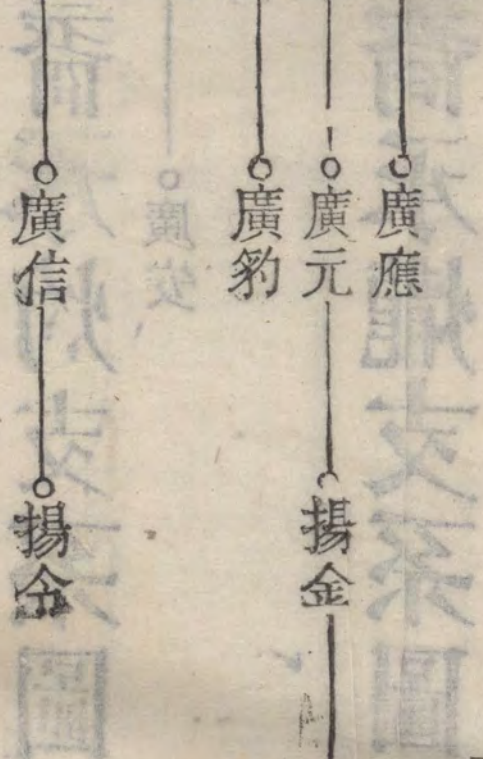 廣應
廣元
揚金
廣豹
廣信
揚